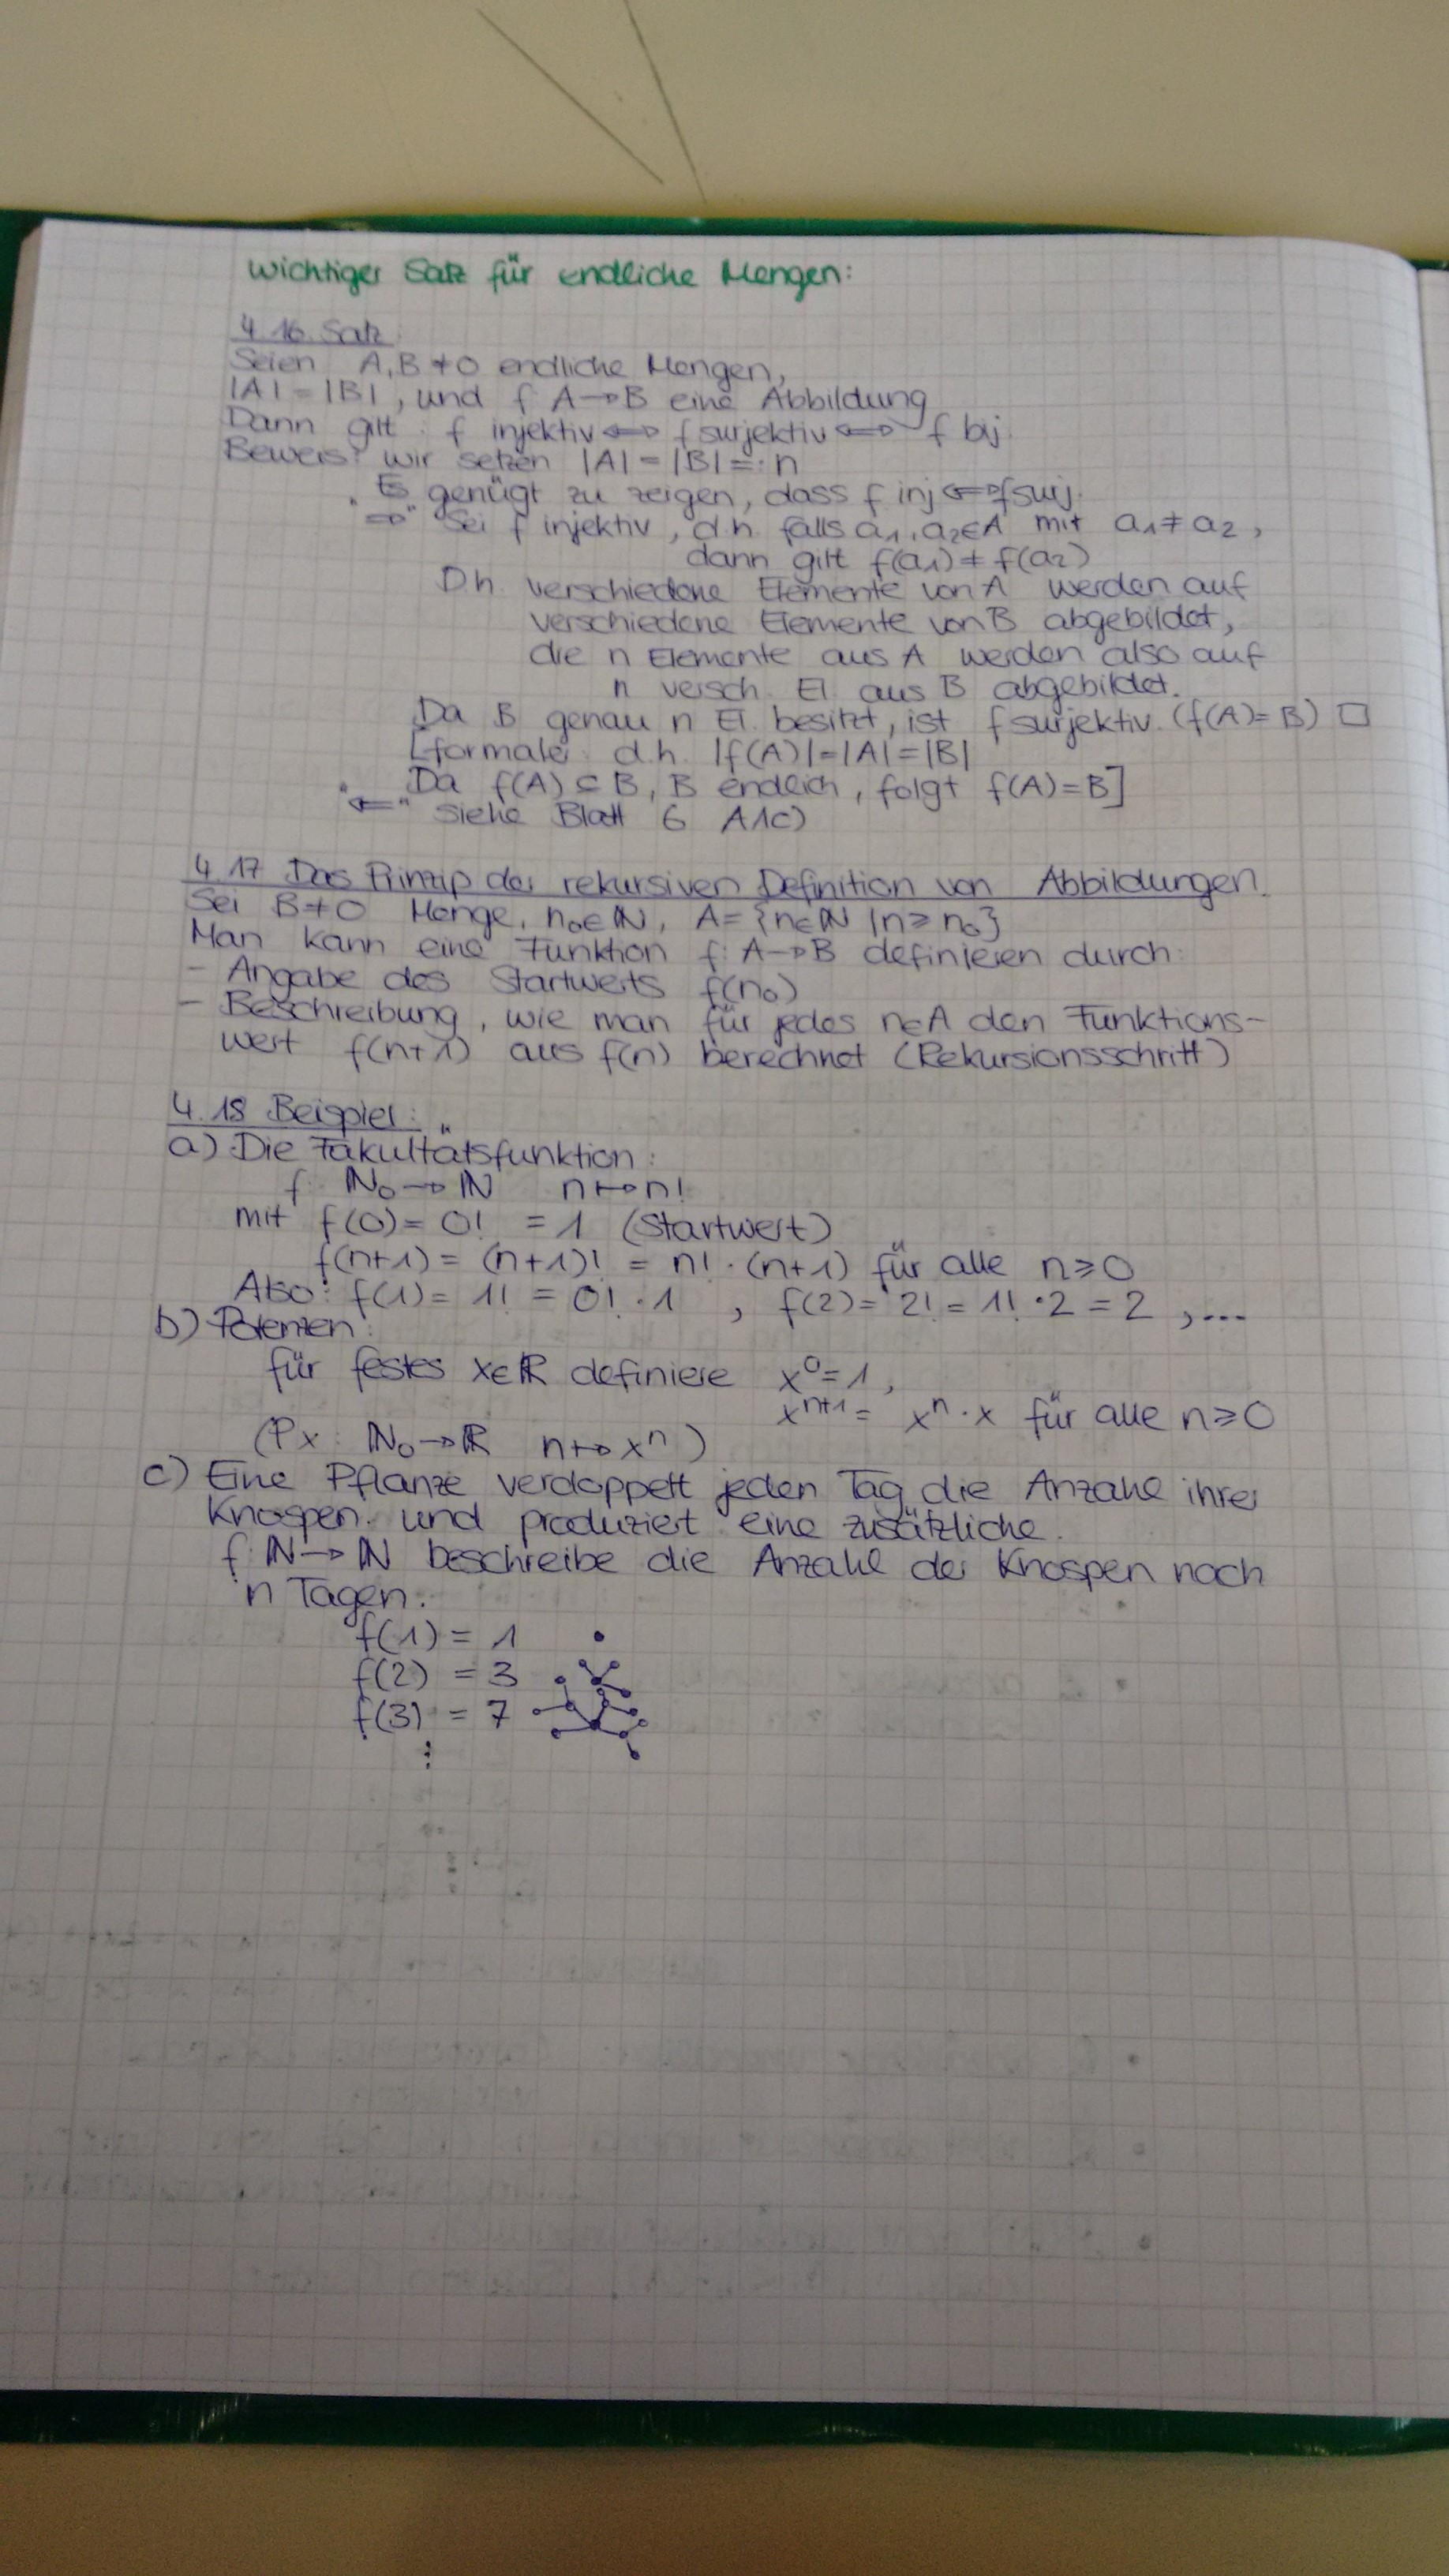 Wichtiger Satz für endliche Mengen:
4.16 Satz:
Seien A, B ≠ 0 endliche Mengen,
|A| = |B|, und f A → B eine Abbildung
Dann gilt: f injektiv ⇔ f surjektiv ⇔ f bij.
Beweis: wir setzen |A| = |B| =: n
Es genügt zu zeigen, dass f inj ⇔ f surj.
"⇒" Sei f injektiv, d.h. falls a₁, a₂ ∈ A mit a₁ ≠ a₂,
dann gilt f(a₁) ≠ f(a₂)
D.h. verschiedene Elemente von A werden auf
verschiedene Elemente von B abgebildet,
die n Elemente aus A werden also auf
n versch. El. aus B abgebildet.
Da B genau n El. besitzt, ist f surjektiv. (f(A) = B) □
[formale: d.h. |f(A)| = |A| = |B|
Da f(A) ⊆ B, B endlich, folgt f(A) = B]
"⇐" siehe Blatt 6 A1c)
4.17 Das Prinzip der rekursiven Definition von Abbildungen.
Sei B ≠ 0 Menge, n₀ ∈ ℕ, A = {n ∈ ℕ | n ≥ n₀}
Man kann eine Funktion f: A → B definieren durch:
- Angabe des Startwerts f(n₀)
- Beschreibung, wie man für jedes n ∈ A den Funktions-
wert f(n+1) aus f(n) berechnet (Rekursionsschritt)
4.18 Beispiel:
a) Die Fakultätsfunktion:
f: ℕ₀ → ℕ n ↦ n!
mit f(0) = 0! = 1 (Startwert)
f(n+1) = (n+1)! = n! · (n+1) für alle n ≥ 0
Also: f(1) = 1! = 0! · 1 , f(2) = 2! = 1! · 2 = 2 , ...
b) Potenzen:
für festes x ∈ ℝ definiere x⁰ = 1,
xⁿ⁺¹ = xⁿ · x für alle n ≥ 0
(Px : ℕ₀ → ℝ n ↦ xⁿ)
c) Eine Pflanze verdoppelt jeden Tag die Anzahl ihrer
Knospen und produziert eine zusätzliche.
f: ℕ → ℕ beschreibe die Anzahl der Knospen nach
n Tagen:
f(1) = 1
f(2) = 3
f(3) = 7
⋮